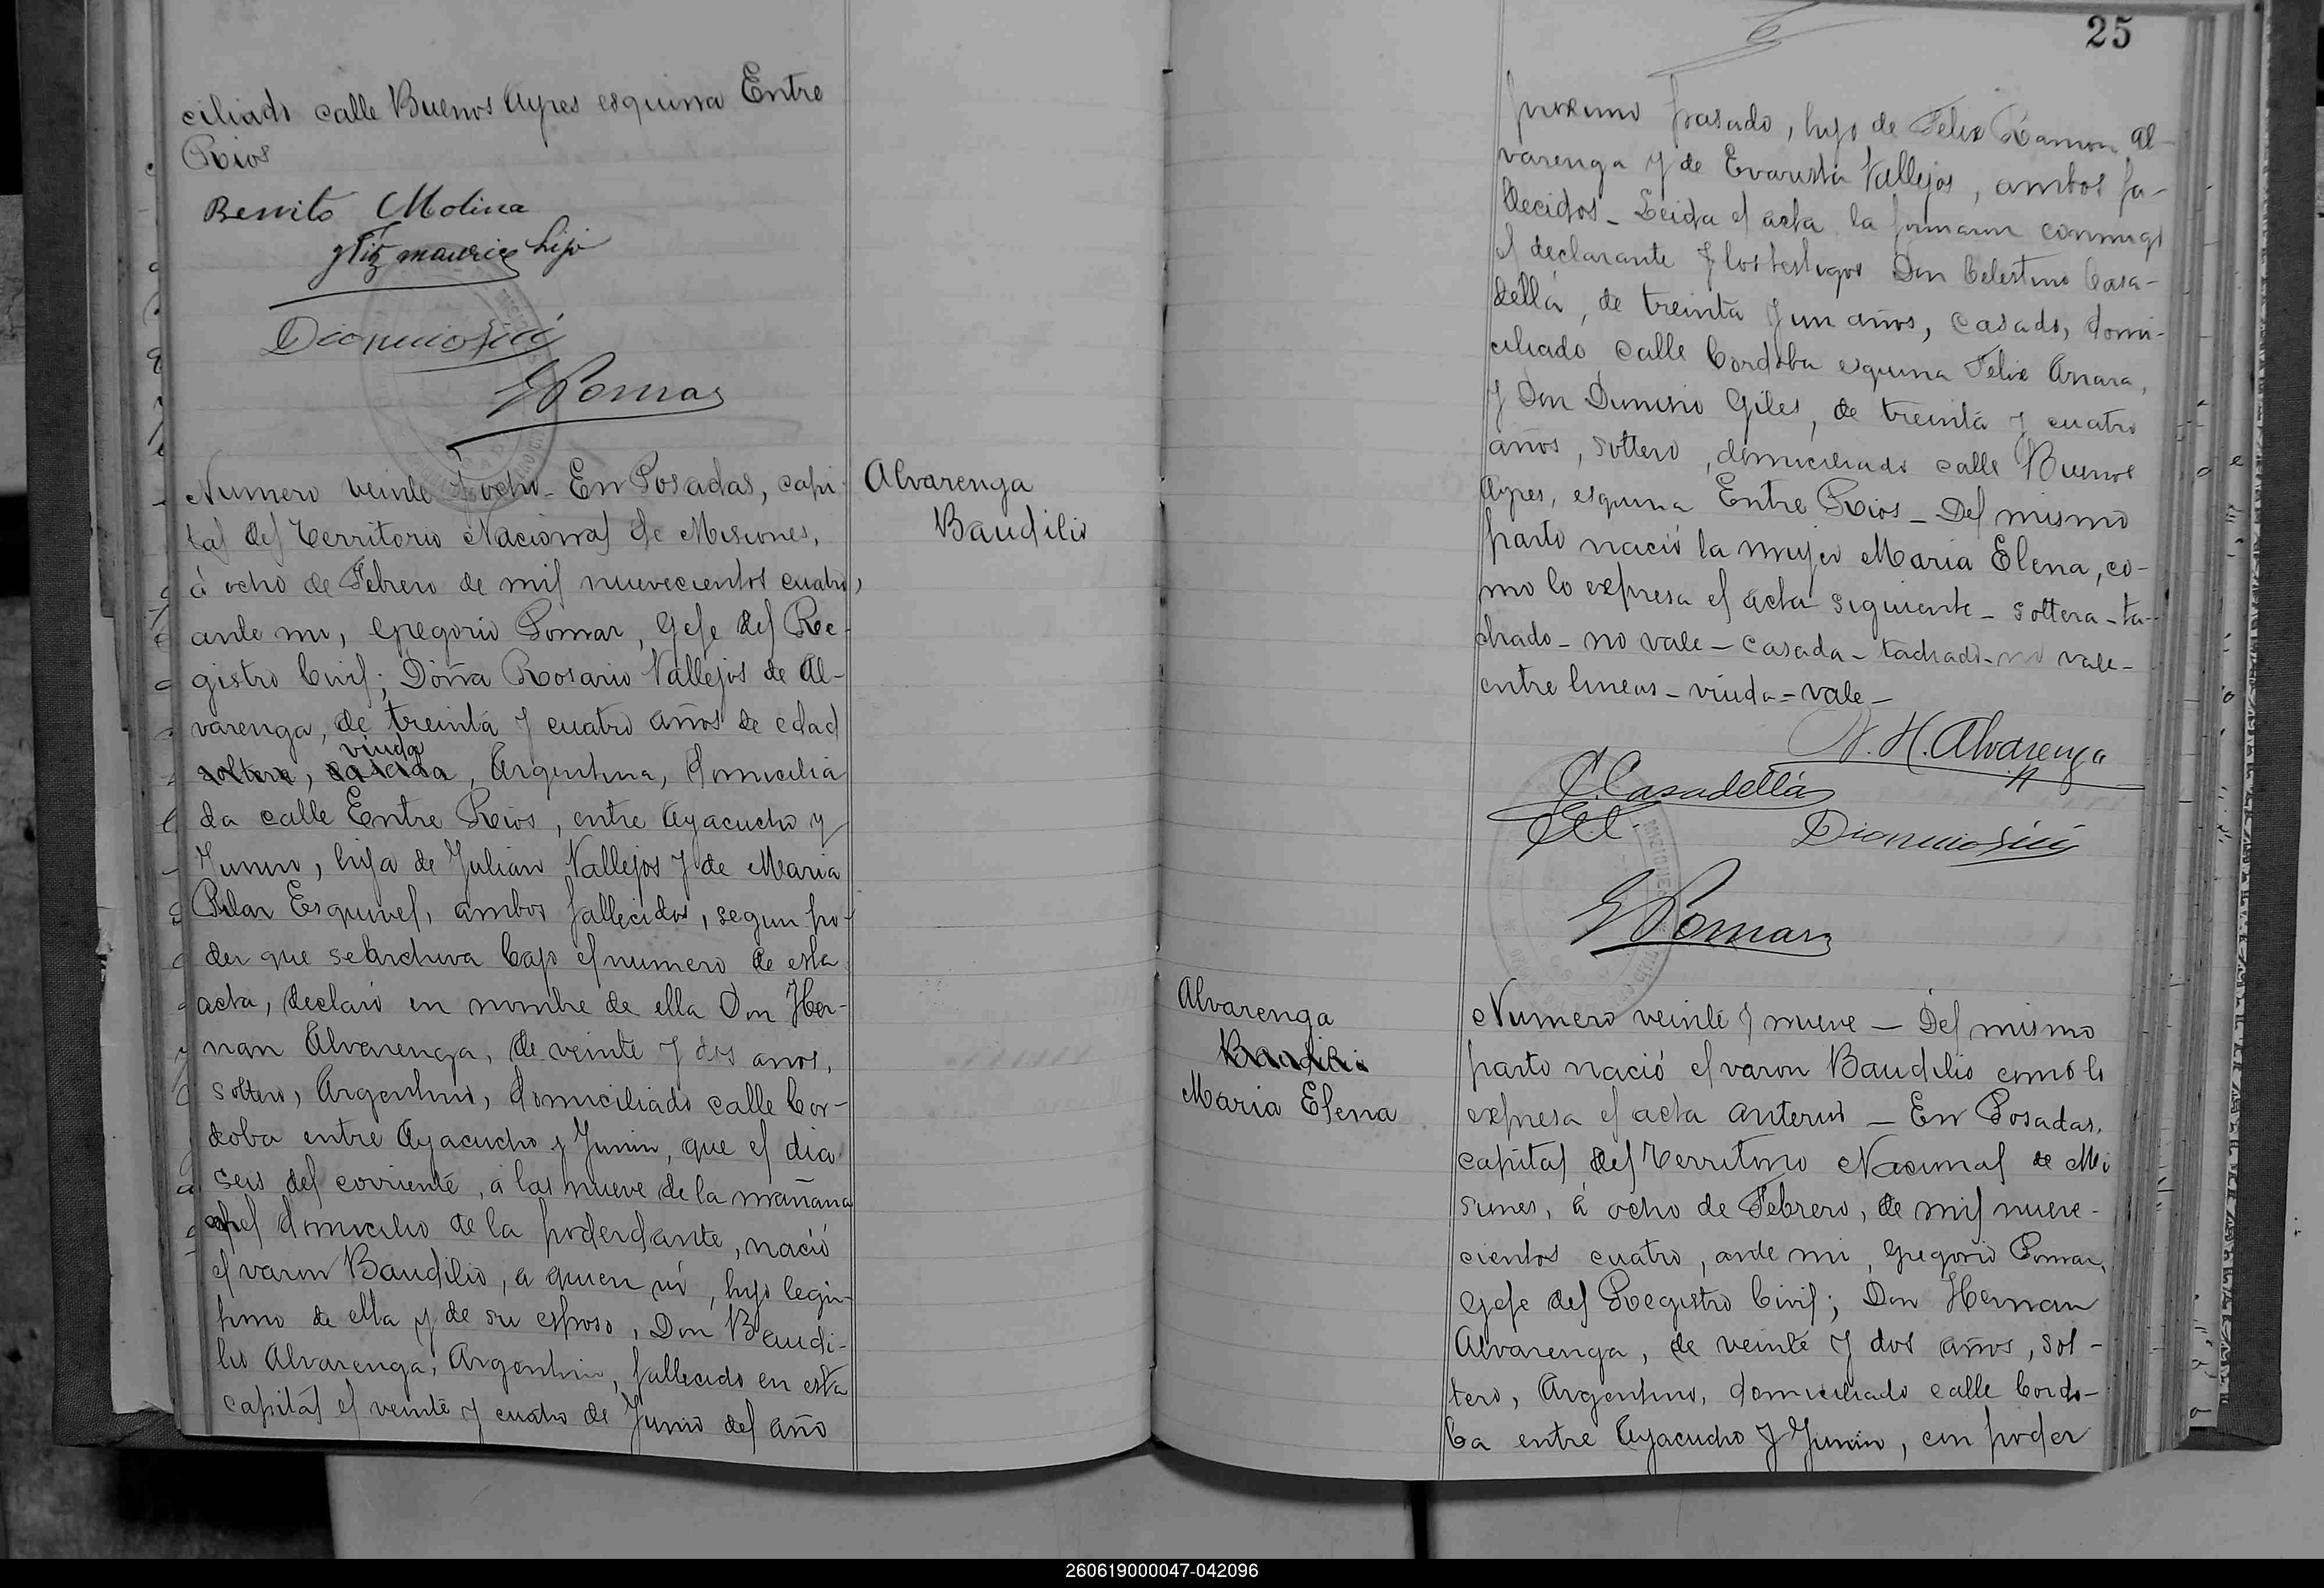 ciliado calle Buenos Ayres esquina Entre
Rios
Benito Molina
Fitz maurice hijo
Dionisio
G Pomar
Numero veinte y ocho - En Posadas, capi-
tal del Territorio Nacional de Misiones,
á ocho de Febrero de mil nuevecientos cuatro,
ante mi, Gregorio Pomar, Gefe del Re-
gistro Civil; Doña Rosario Vallejos de Al-
varenga, de treinta y cuatro años de edad
viuda
soltera, casada, Argentina, domicilia
da calle Entre Rios, entre Ayacucho y
Junin, hija de Julian Vallejos y de Maria
Pilar Esquivel, ambos fallecidos, segun po-
der que se archiva bajo el numero de esta
acta, declaró en nombre de ella Don Her-
nan Alvarenga, de veinte y dos anos,
soltero, Argentino, domiciliado calle Cor-
doba entre Ayacucho y Junin, que el dia
seis del corriente, a las nueve de la mañana
en el domicilio de la poderdante, nació
el varon Baudilio, a quien vi, hijo legi-
timo de ella y de su esposo, Don Baudi-
lio Alvarenga, Argentino, fallecido en esta
capital el veinte y cuatro de Junio del año
Alvarenga
Baudilio
25
proximo pasado, hijo de Felix Ramon Al-
varenga y de Evarista Vallejos, ambos fa-
llecidos - Leida el acta la firmaron conmigo
el declarante y los testigos Don Celestino Casa-
dellá, de treinta y un años, casado, domi-
ciliado calle Cordoba esquina Felix Azara,
y Don Dionisio Giles, de treinta y cuatro
años, soltero, domiciliado calle Buenos
Ayres, esquina Entre Rios - Del mismo
parto nació la mujer Maria Elena, co-
mo lo expresa el acta siguiente - soltera - ta-
chado - no vale - casada - tachado - no vale -
entre lineas - viuda = vale -
N. H. Alvarenga
C. Casadellá
Dionisio
G Pomar
Alvarenga
Baudilio
Maria Elena
Numero veinte y nueve - Del mismo
parto nació el varon Baudilio como lo
expresa el acta anterior - En Posadas,
capital del Territorio Nacional de Mi
siones, á ocho de Febrero, de mil nueve-
cientos cuatro, ante mi, Gregorio Pomar,
Gefe del Registro Civil; Don Hernan
Alvarenga, de veinte y dos años, sol-
tero, Argentino, domiciliado calle Cordo-
ba entre Ayacucho y Junin, con poder
260619000047-042096